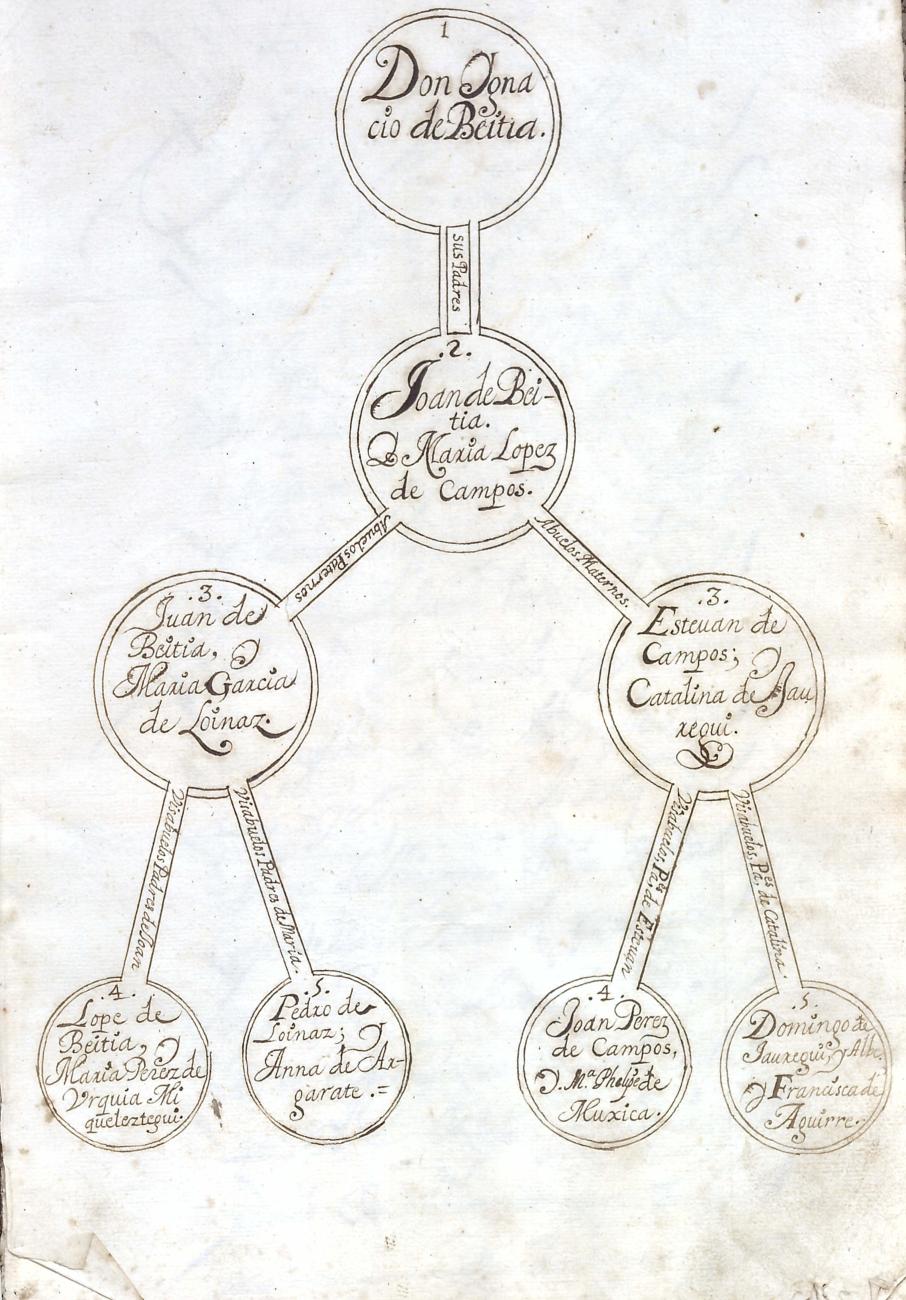 1
Don Igna
cio de Beitia.
sus Padres
.2.
Joan de Bei-
tia.
Maria Lopez
de Campos.
Abuelos Paternos
Abuelos Maternos.
.3.
Juan de
Beitia, y
Maria Garcia
de Loinaz.
.3.
Esteuan de
Campos; y
Catalina de Jau
regui.
Visabuelos Padres de Joan
Visabuelos Padres de Maria.
Visabuelos, Pa.es de Esteuan
Visabuelos, Pa.es de Catalina.
.4.
Lope de
Beitia, y
Maria Perez de
Vrquia Mi
queleztegui.
.5.
Pedro de
Loinaz; y
Anna de Ar-
garate.=
.4.
Joan Perez
de Campos,
y. M.a Phelipe de
Muxica.
.5.
Domingo de
Jauregui, y
y Francisca de
Aguirre.